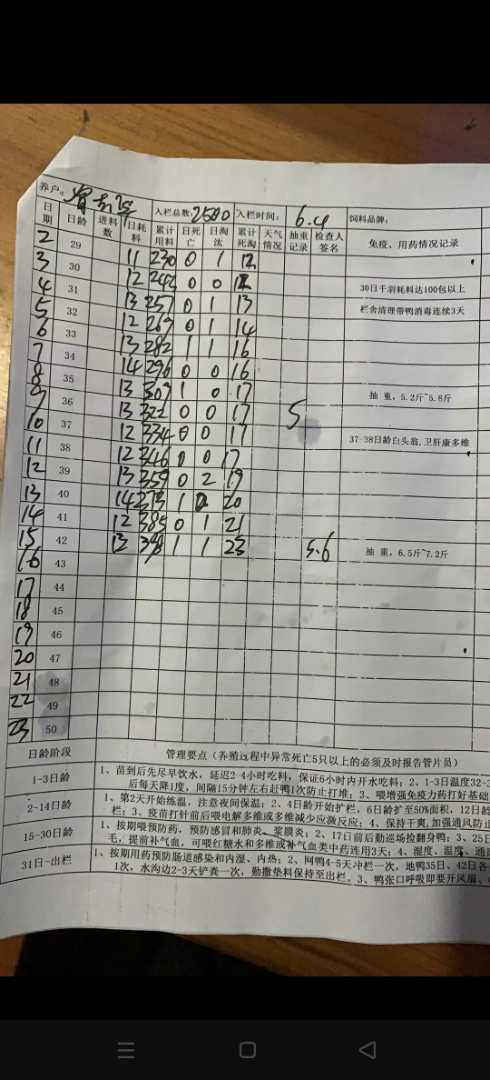 养户: 入栏总数: 2500 入栏时间: 6.4 饲料品牌:
日期 日龄 进料数 日耗料 累计用料 日死亡 日淘汰 累计死淘 天气情况 抽重记录 检查人签名 免疫、用药情况记录
2 29 11 230 0 1 12
3 30 12 242 0 0 12 30日千羽耗料达100包以上
4 31 13 257 0 1 13 栏舍清理带鸭消毒连续3天
5 32 12 269 0 1 14
6 33 13 282 1 1 16
7 34 14 296 0 0 16
8 35 13 309 1 0 17 抽 重,5.2斤~5.8斤
9 36 13 322 0 0 17 5
10 37 12 334 0 0 17 37-38日龄白头翁,卫肝康多维
11 38 12 346 0 0 17
12 39 13 359 0 2 19
13 40 14 373 1 20
14 41 12 385 0 1 21
15 42 13 398 1 1 23 5.6 抽 重,6.5斤~7.2斤
16 43
17 44
18 45
19 46
20 47
21 48
22 49
23 50
日龄阶段 管理要点(养殖过程中异常死亡5只以上的必须及时报告管片员)
1-3日龄 1、苗到后先尽早饮水,延迟2-4小时吃料,保证6小时内开水吃料;2、1-3日温度32-3
后每天降1度,间隔15分钟左右赶鸭1次防止打堆;3、喂增强免疫力药打好基础
2-14日龄 1、第2天开始炼温,注意夜间保温;2、4日龄开始扩栏,6日龄扩至50%面积,12日龄
栏;3、疫苗打针前后喂电解多维或多维减少应激反应;4、保持干爽,加强通风防止
15-30日龄 1、按期喂预防药,预防感冒和肺炎、浆膜炎;2、17日前后勤巡场捡翻身鸭;3、25日
毛,提前补气血,可喂红糖水和多维或补气血类中药连用3天;4、湿度、温度、通
31日-出栏 1、按期用药预防肠道感染和内湿、内热;2、网鸭4-5天冲栏一次,地鸭35日、42日各
1次,水沟边2-3天铲粪一次,勤撒垫料保持至出栏。3、鸭张口呼吸即要开风扇、